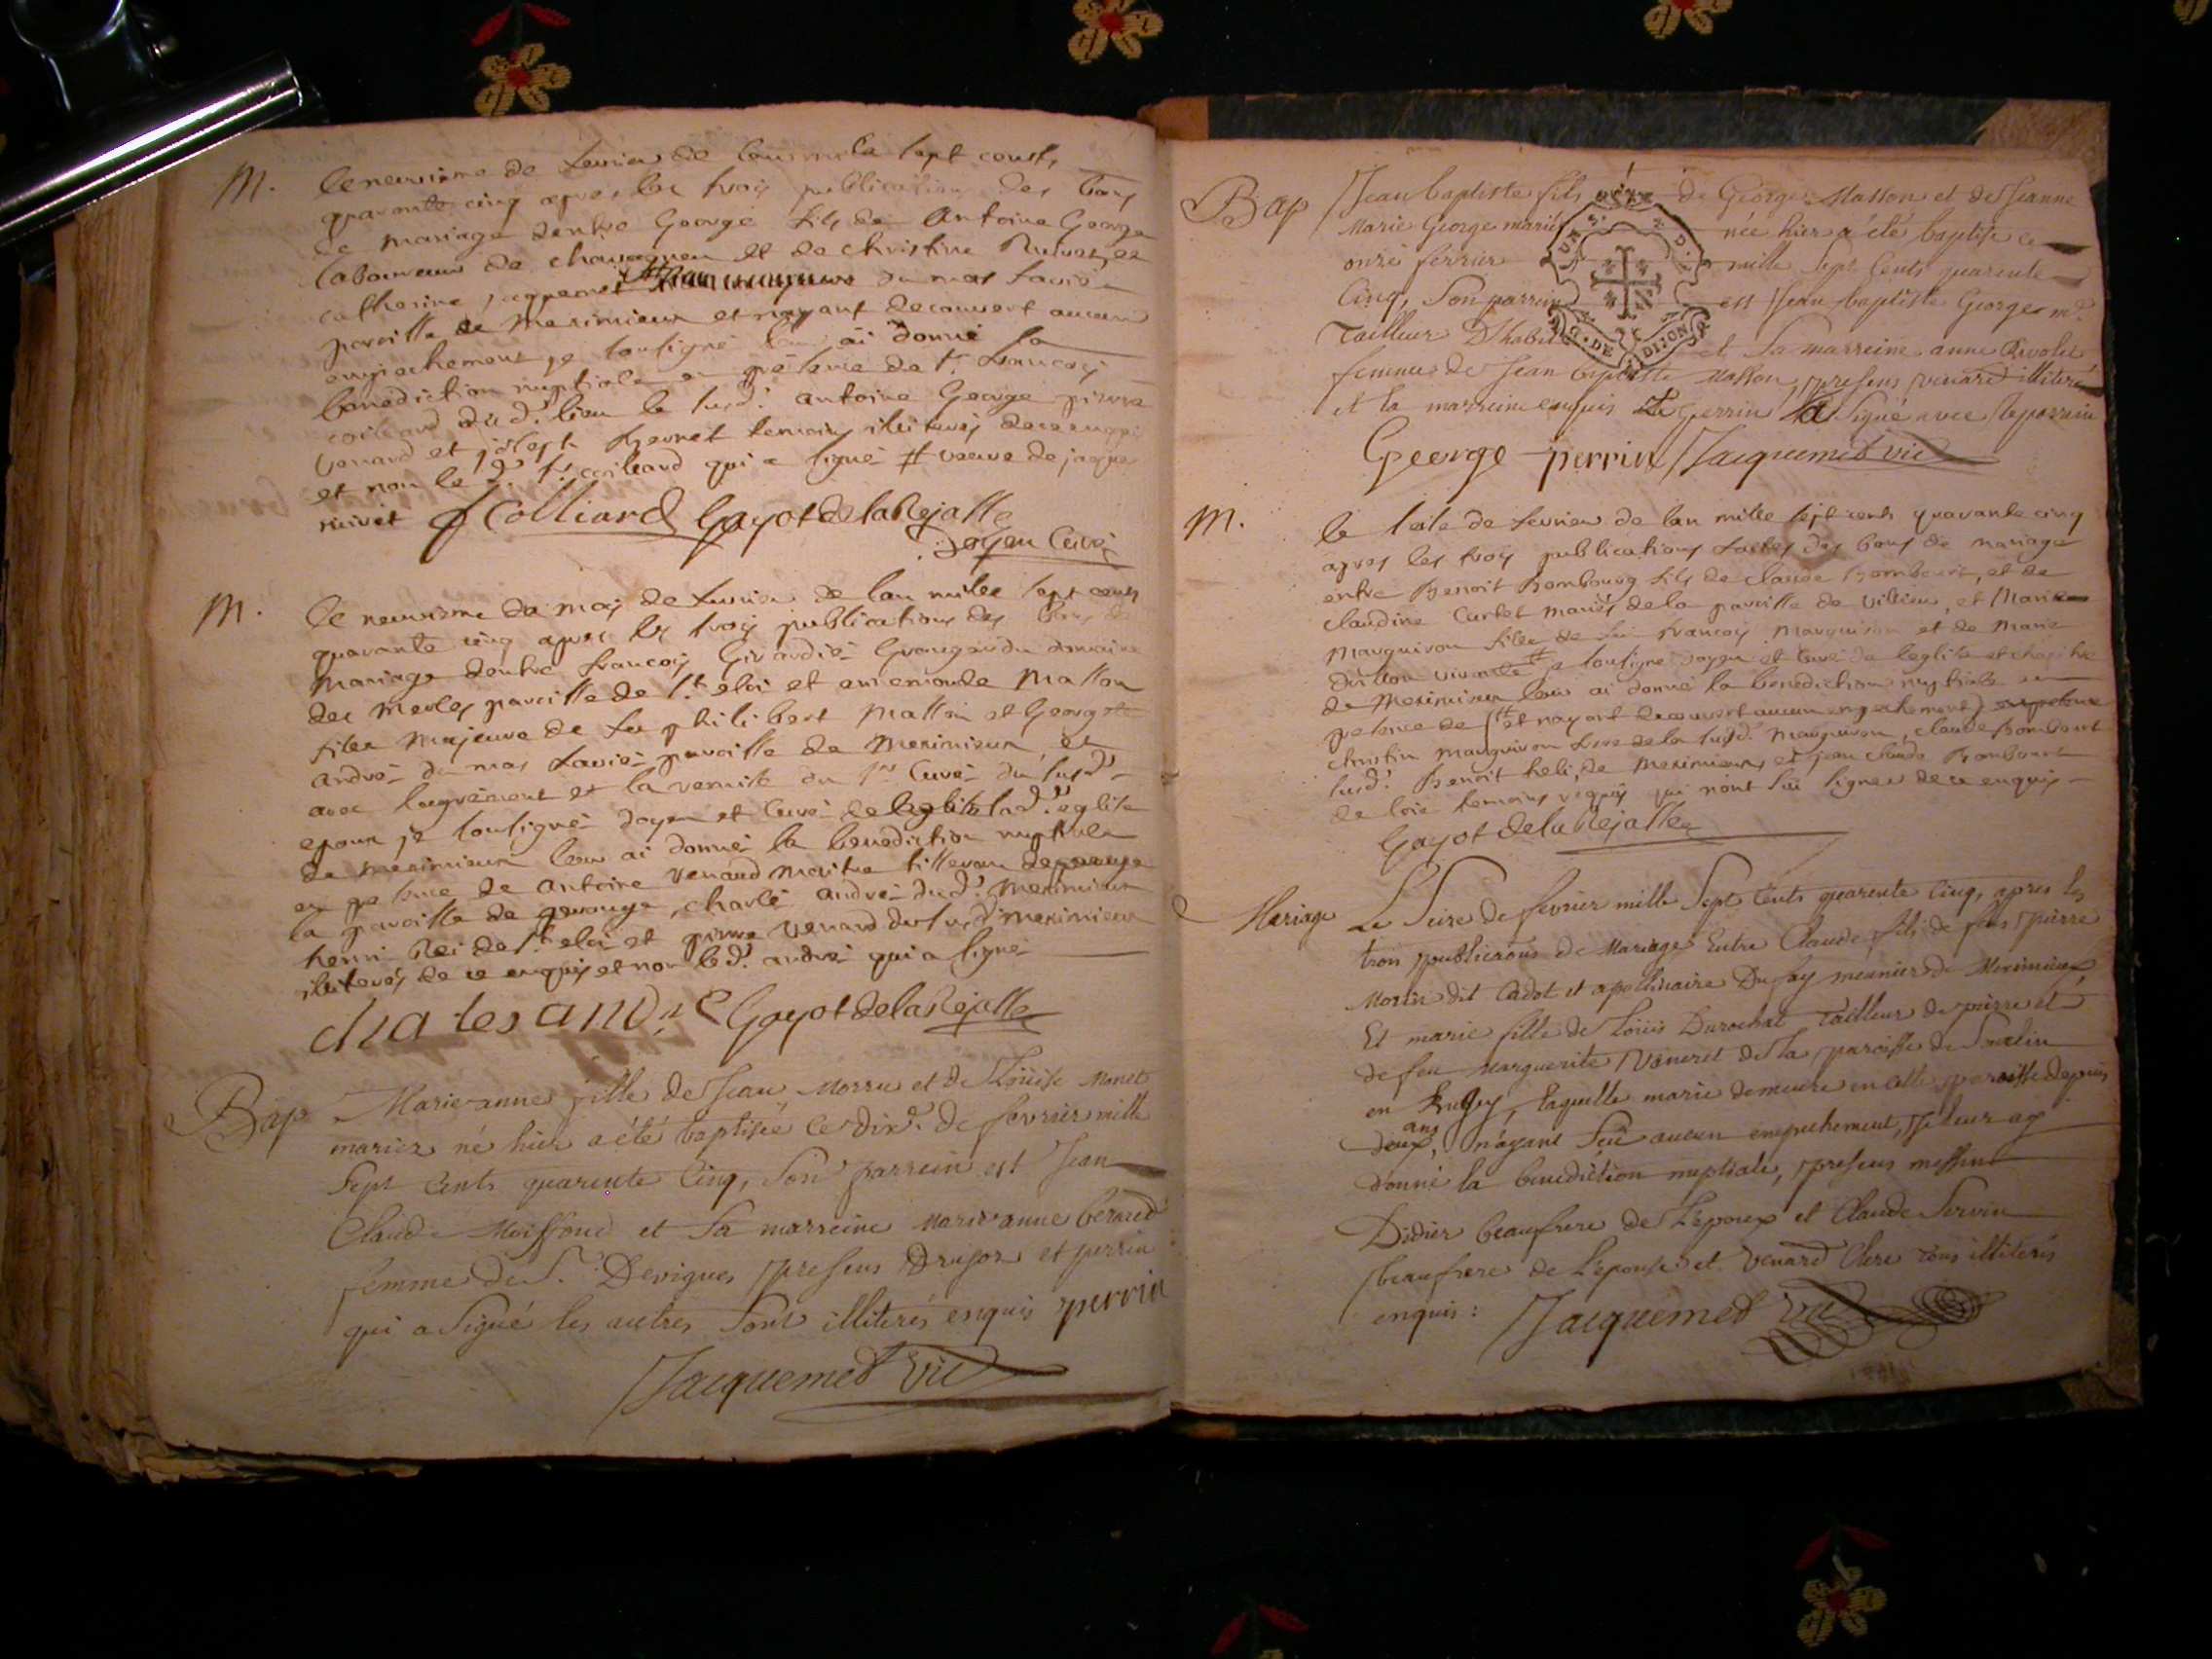 M. le neuvieme de fevrier de l'an mille sept cents
quarante cinq apres les trois publications des bans
de mariage d'entre George fils de Antoine George
laboureur de et de Christine et
Catherine Jacquemet du mas
paroisse de meximieux et n'ayant decouvert aucun
empechement je soussigné leur ai donné la
benediction nuptiale en presence de Sr. francois
coilliard du d. lieu le susd. antoine George pierre
venard et joseph bernet temoins illiterés de ce enquis
et non le d. Sr. coilliard qui a signé # veuve de jaque
rivet f Colliard Gayot de la Rejasse
Doyen Curé
M. le neuvieme du mois de fevrier de l'an mille sept cents
quarante cinq apres les trois publications des bans de
mariage d'entre francois Girardié Granger du domaine
des merles paroisse de St. eloi et enemonde Masson
fille majeure de feu philibert Masson et George
andré du mas paroisse de Meximieux, et
avec l'agrement et la remise du Sr. Curé du susd.
epoux je soussigné doyen et Curé de l'eglise lad. eglise
de meximieux leur ai donné la benediction nuptiale
en presence de antoine venard maitre tisseran
la paroisse de perouge, charle andré du d. meximieux
henri Rei de St. eloi et pierre venard du susd. meximieux
illiterés de ce enquis et non le d. andré qui a signé
charles andre Gayot de la Rejasse
Bap Marie-anne fille de Jean Morru et de Loüise Monet
mariez né hier a été baptisée ce dix. de fevrier mille
Sept Cents quarente Cinq, Son parrein est Jean
Claude Moissond et Sa marreine marie anne berard
femme de Sr. Devignes presens Drujon et perrin
qui a Signé les autres Sont illiterés enquis perrin
Jacquemet vic
Bap Jean baptiste fils de George Masson et de Jeanne
Marie George mariés née hier a été baptisé ce
onze fevrier mille Sept Cents quarente
Cinq, Son parrein est Jean baptiste George md.
Tailleur D'habit et Sa marreine anne Rivolet
femme de Jean baptiste Masson, presens venard illiteré
et la marreine enquis Le perrin a Signé avec le parrein
George perrin Jacquemet vic
GEN. DE DIJON
M. le seize de fevrier de l'an mille sept cents quarante cinq
apres les trois publications faites des bans de mariage
entre Benoit Bombourg fils de claude Bombourg, et de
claudine Curtet mariés de la paroisse de villieu, et Marie
Manguiron fille de feu francois Manguiron et de Marie
vivante # je soussigné doyen et curé de l'eglise et chapitre
de Meximieux leur ai donné la benediction nuptiale en
presence de (# et n'ayant decouvert aucun empechement) en presence
christin manguiron frere de la susd. Manguiron, claude Bombourg
susd. Benoit heli, de Meximieux, et jean claude Bombourg
de loie temoins requis qui n'ont sçu signer de ce enquis
Gayot de la Rejasse
Mariage Le Seize de fevrier mille Sept Cents quarente Cinq, apres les
trois publications de Mariage Entre Claude fils de feus pierre
Morin dit Cadot et apollinaire Dufay meunier de Meximieux
Et marie fille de Loüis Durochat, Tailleur de pierre et
de feu Marguerite Vaneret de la paroisse de
en Bugey, laquelle marie demeure en cette paroisse depuis
deux ans, n'ayant Sçu aucun empechement, je leur ay
donné la benediction nuptiale, presens
Didier beaufrere de L'epoux et Claude Servin
beaufrere de L'epouse et venard Clerc tous illiterés
enquis : Jacquemet vic